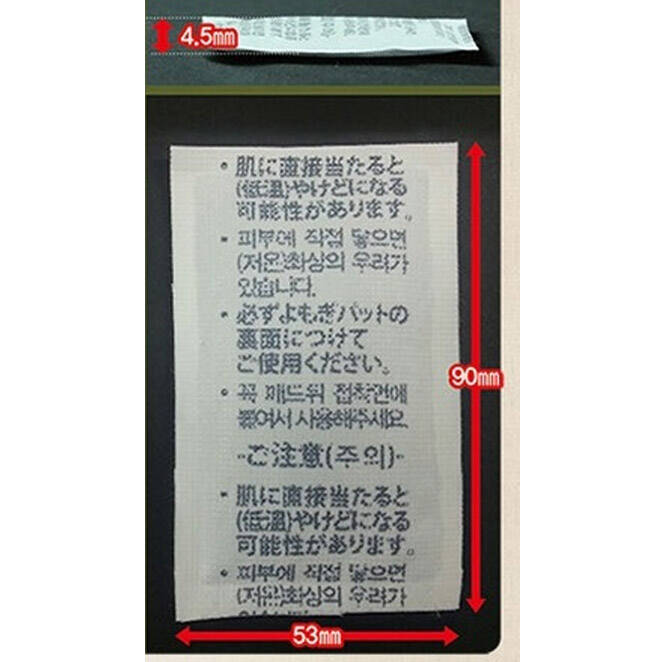 4.5mm
• 肌に直接当たると
(低温)やけどになる
可能性があります。
• 피부에 직접 닿으면
(저온)화상의 우려가
있습니다.
• 必ずよもぎパットの
裏面につけて
ご使用ください。
• 꼭 패드위 접착면에
붙여서 사용해주세요.
-ご注意(주의)-
• 肌に直接当たると
(低温)やけどになる
可能性があります。
• 피부에 직접 닿으면
(저온)화상의 우려가
90mm
53mm